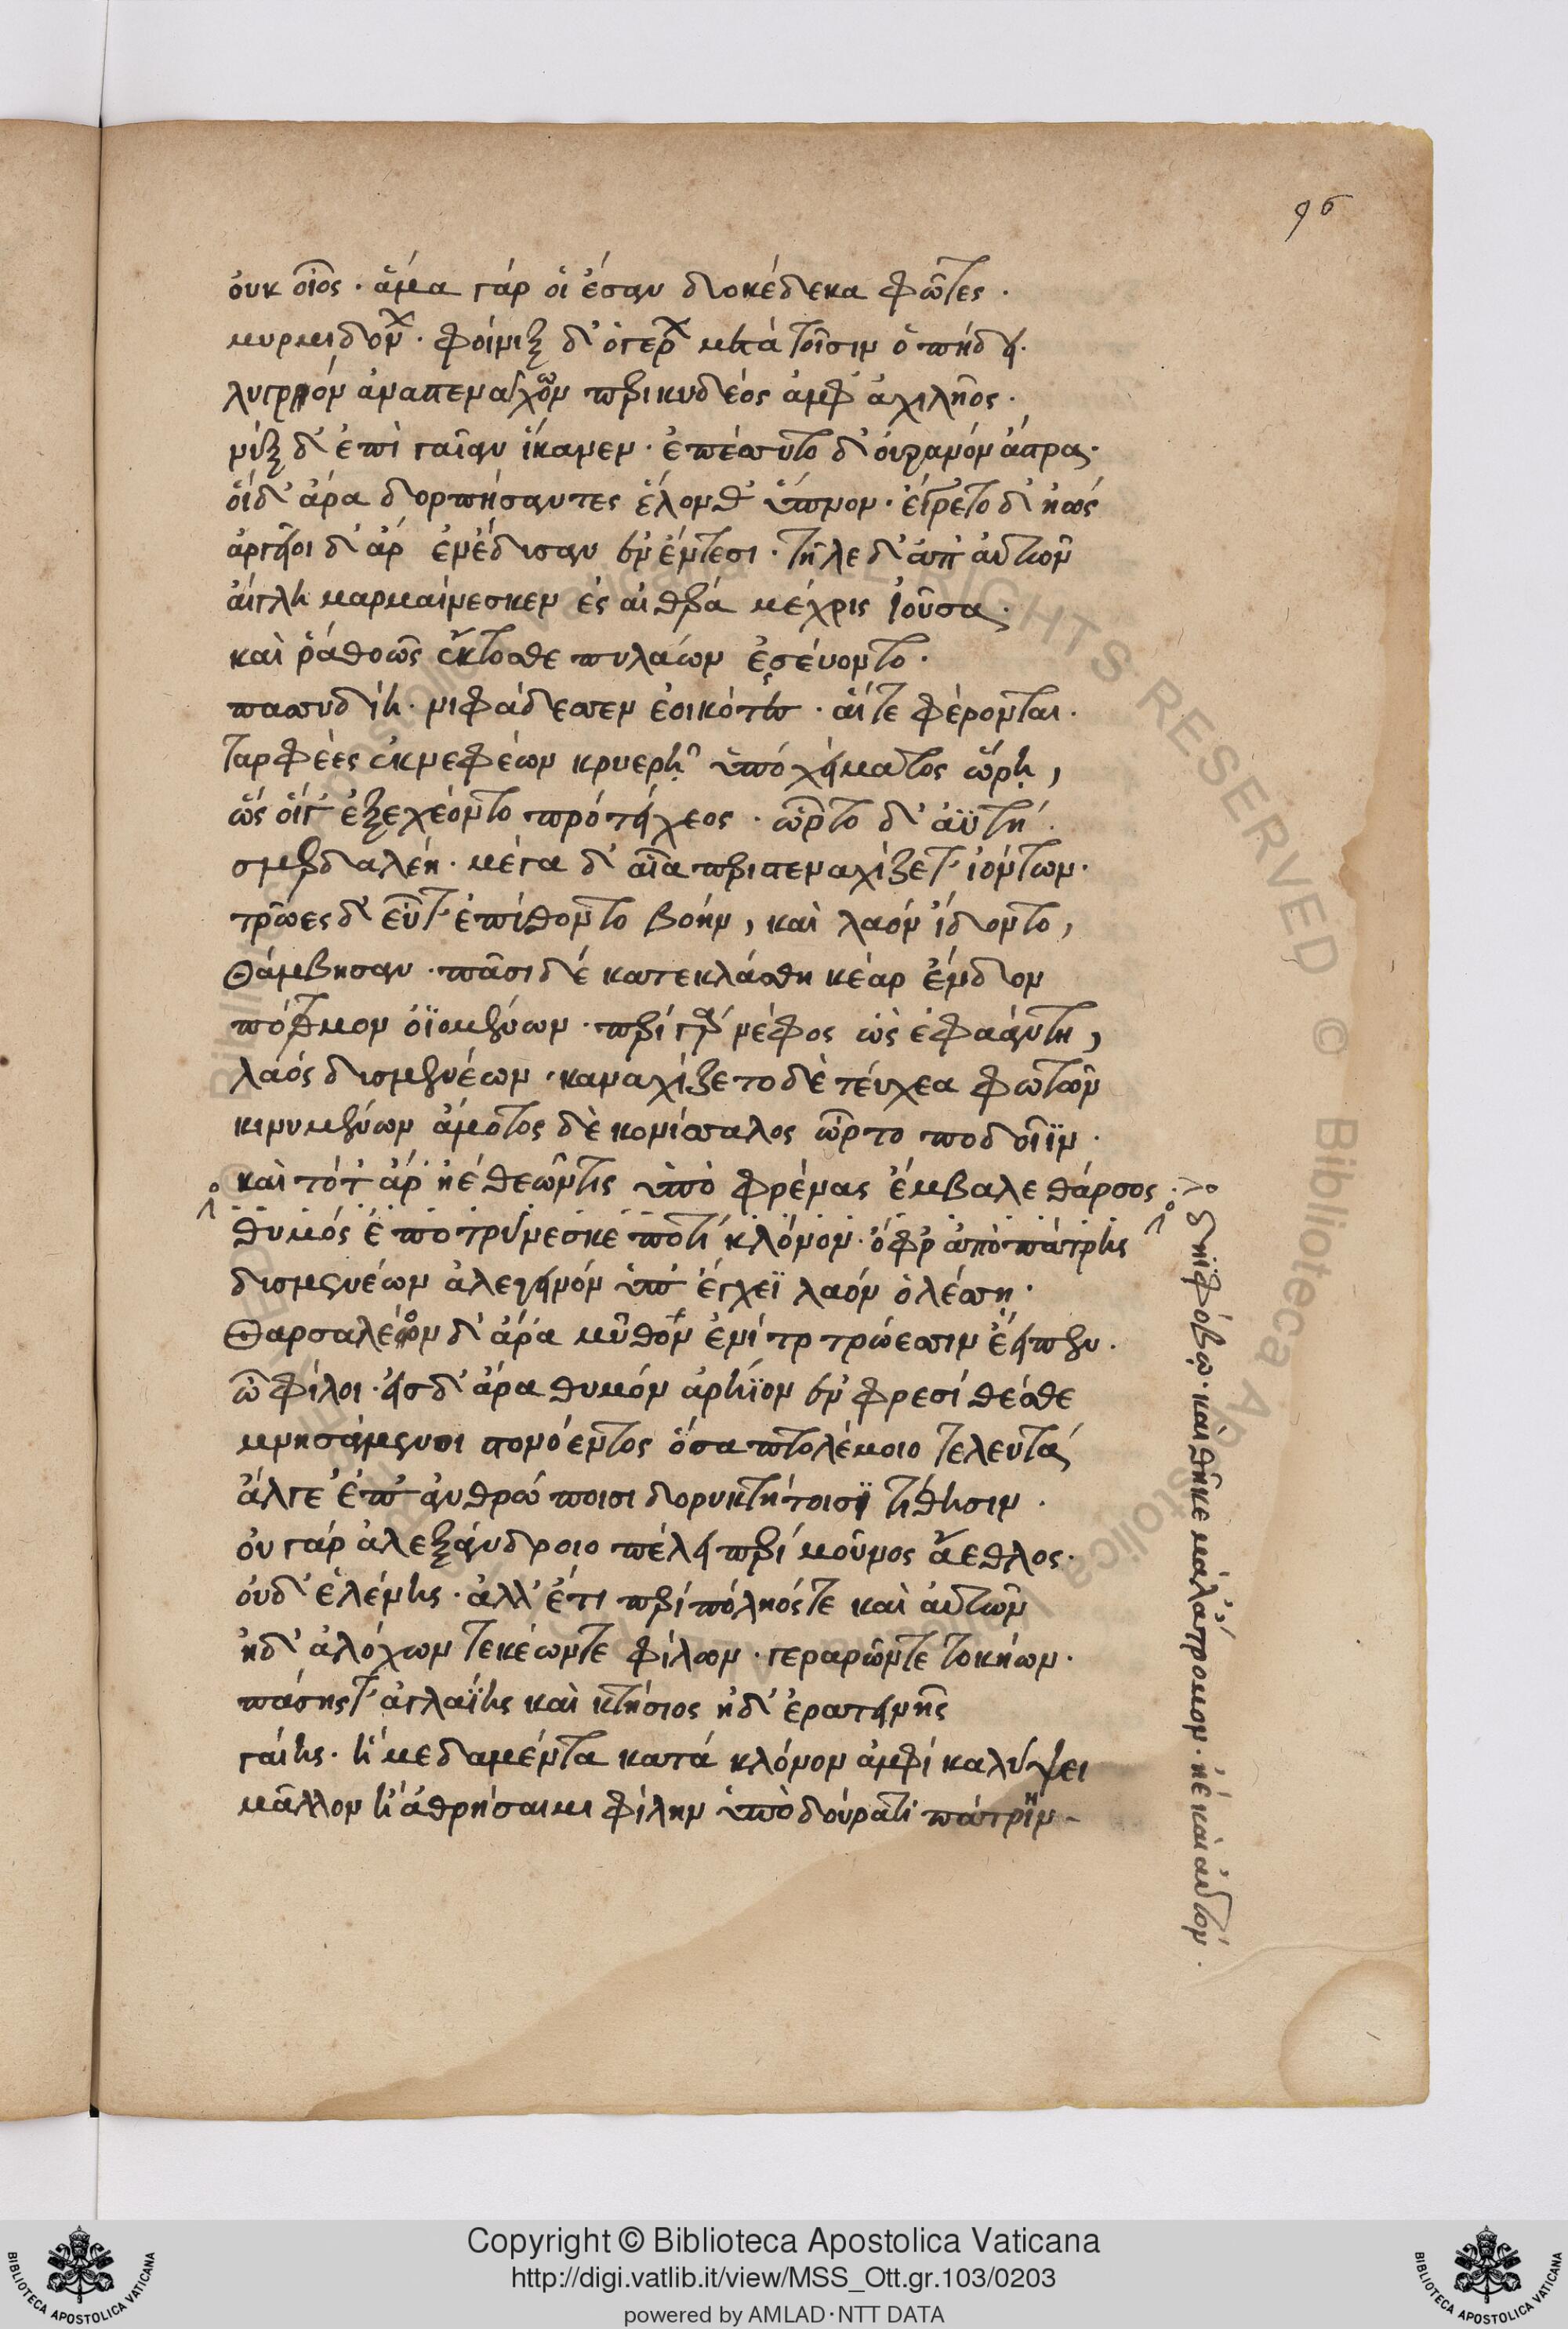 96
ὀυκ οἶος · ἅμα γάρ ὁἱ ἔσαν δυοκέδεκα φῶτες ·
μυρμιδον · φοίνιξ δ' ὁ γερ μετὰ τοῖσιν ὀπήδει ·
λυγρόν ἀναστεναχῶν περικυδέος ἀμφ' ἀχιλῆος ·
νύξ δ' ἐπὶ γαῖαν ἵκανεν · ἐπέσυτο δ' ὀυρανόν ἄστρα ·
ὅιδ' ἄρα δορπήσαντες ἕλονθ' ὕπνον · ἔγρετο δ' ἠώς
ἀργεῖοι δ' ἄρ ἐνέδυσαν ἐν ἔντεσι · τῆλε δ' ἀπ' ἀυτῶν
ἄιγλη μαρμαίνεσκεν ἐς αἰθέρα μέχρις ἰοῦσα ·
καὶ ῥάθοῶς ἔκτοσθε πυλάων ἐσέυοντο ·
πασυδίη · νιφάδεσεν ἐοικότες · ἅι τε φέρονται ·
ταρφέες ἐκνεφέων κρυερῆ ὑπό χείματος ὥρη ,
ὥς ὅιγ' ἐξεχέοντο πρό τείχεος · ὦρτο δ' ἀϋτή ·
σμερδαλέη · μέγα δ' αἶα περιστεναχίζετ' ἰόντων ·
τρῶες δ' εὖτ' ἐπίθοντο βοήν , καὶ λαόν ἴδοντο ,
θάμβησαν · πᾶσι δέ κατεκλάσθη κέαρ ἔνδον
πότμον ὀϊομένων · περί γάρ νέφος ὡς ἐφαάντη ,
λαός δυσμενέων · καναχίζετο δὲ τέυχεα φωτῶν
κινυμένων ἄμοτος δὲ κονίσαλος ὦρτο ποδοῖϊν ·
καὶ τότ' ἄρ ἠέ θεῶντις ὑπὸ φρένας ἔμβαλε θάρσος · δηϊφόβω · καὶ θῆκε μάλ' ἄτρομον · ἠέ καὶ ἀυτόν ·
θυμός ἐποτρύνεσκε ποτί κλόνον · ὄφρ ἀπὸ πάτρης
δυσμενέων ἀλεγεινόν ὑπ' ἔγχεϊ λαόν ὀλέση ·
θαρσαλέον δ' ἄρα μῦθον ἐνί τρ τρώεσιν ἔειπεν ·
ὦ φίλοι · εἰσδ' ἄρα θυμόν ἀρήϊον ἐν φρεσί θέσθε
μνησάμενοι στονόεντος ὅσα πτολέμοιο τελευτά
ἄλγε' ἐπ' ἀνθρώποισι δορυκτήτοισϊ τίθησιν ·
ὀυ γάρ ἀλεξάνδροιο πέλει περί μοῦνος ἄεθλος ·
ὀυδ' ἑλένης · ἀλλ' ἔτι περί πόληός τε καὶ ἀυτῶν
ἠδ' ἀλόχων τεκέωντε φίλων · γεραρῶντε τοκήων ·
πάσηςτ' ἀγλαΐης καὶ κτήσιος ἠδ' ἐρατεινῆς
γάιης · ἥ μεδαμέντα κατά κλόνον ἀμφί καλύψει
μᾶλλον ἤ ἀθρήσαιμι φίλην ὑπὸ δούρατι πάτρην
Copyright © Biblioteca Apostolica Vaticana
http://digi.vatlib.it/view/MSS_Ott.gr.103/0203
powered by AMLAD·NTT DATA